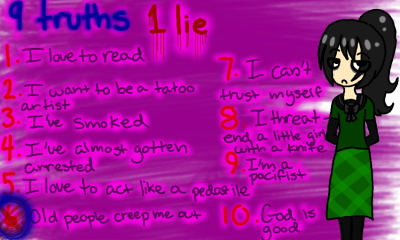 9 truths 1 lie
1. I love to read
2. I want to be a tatoo
artist
3. I've smoked
4. I've almost gotten
arrested
5. I love to act like a pedafile
Old people creep me out
7. I can't
trust myself
8 I threat-
end a little girl
with a knife
9. I'm a
pacifist
10. God is
good